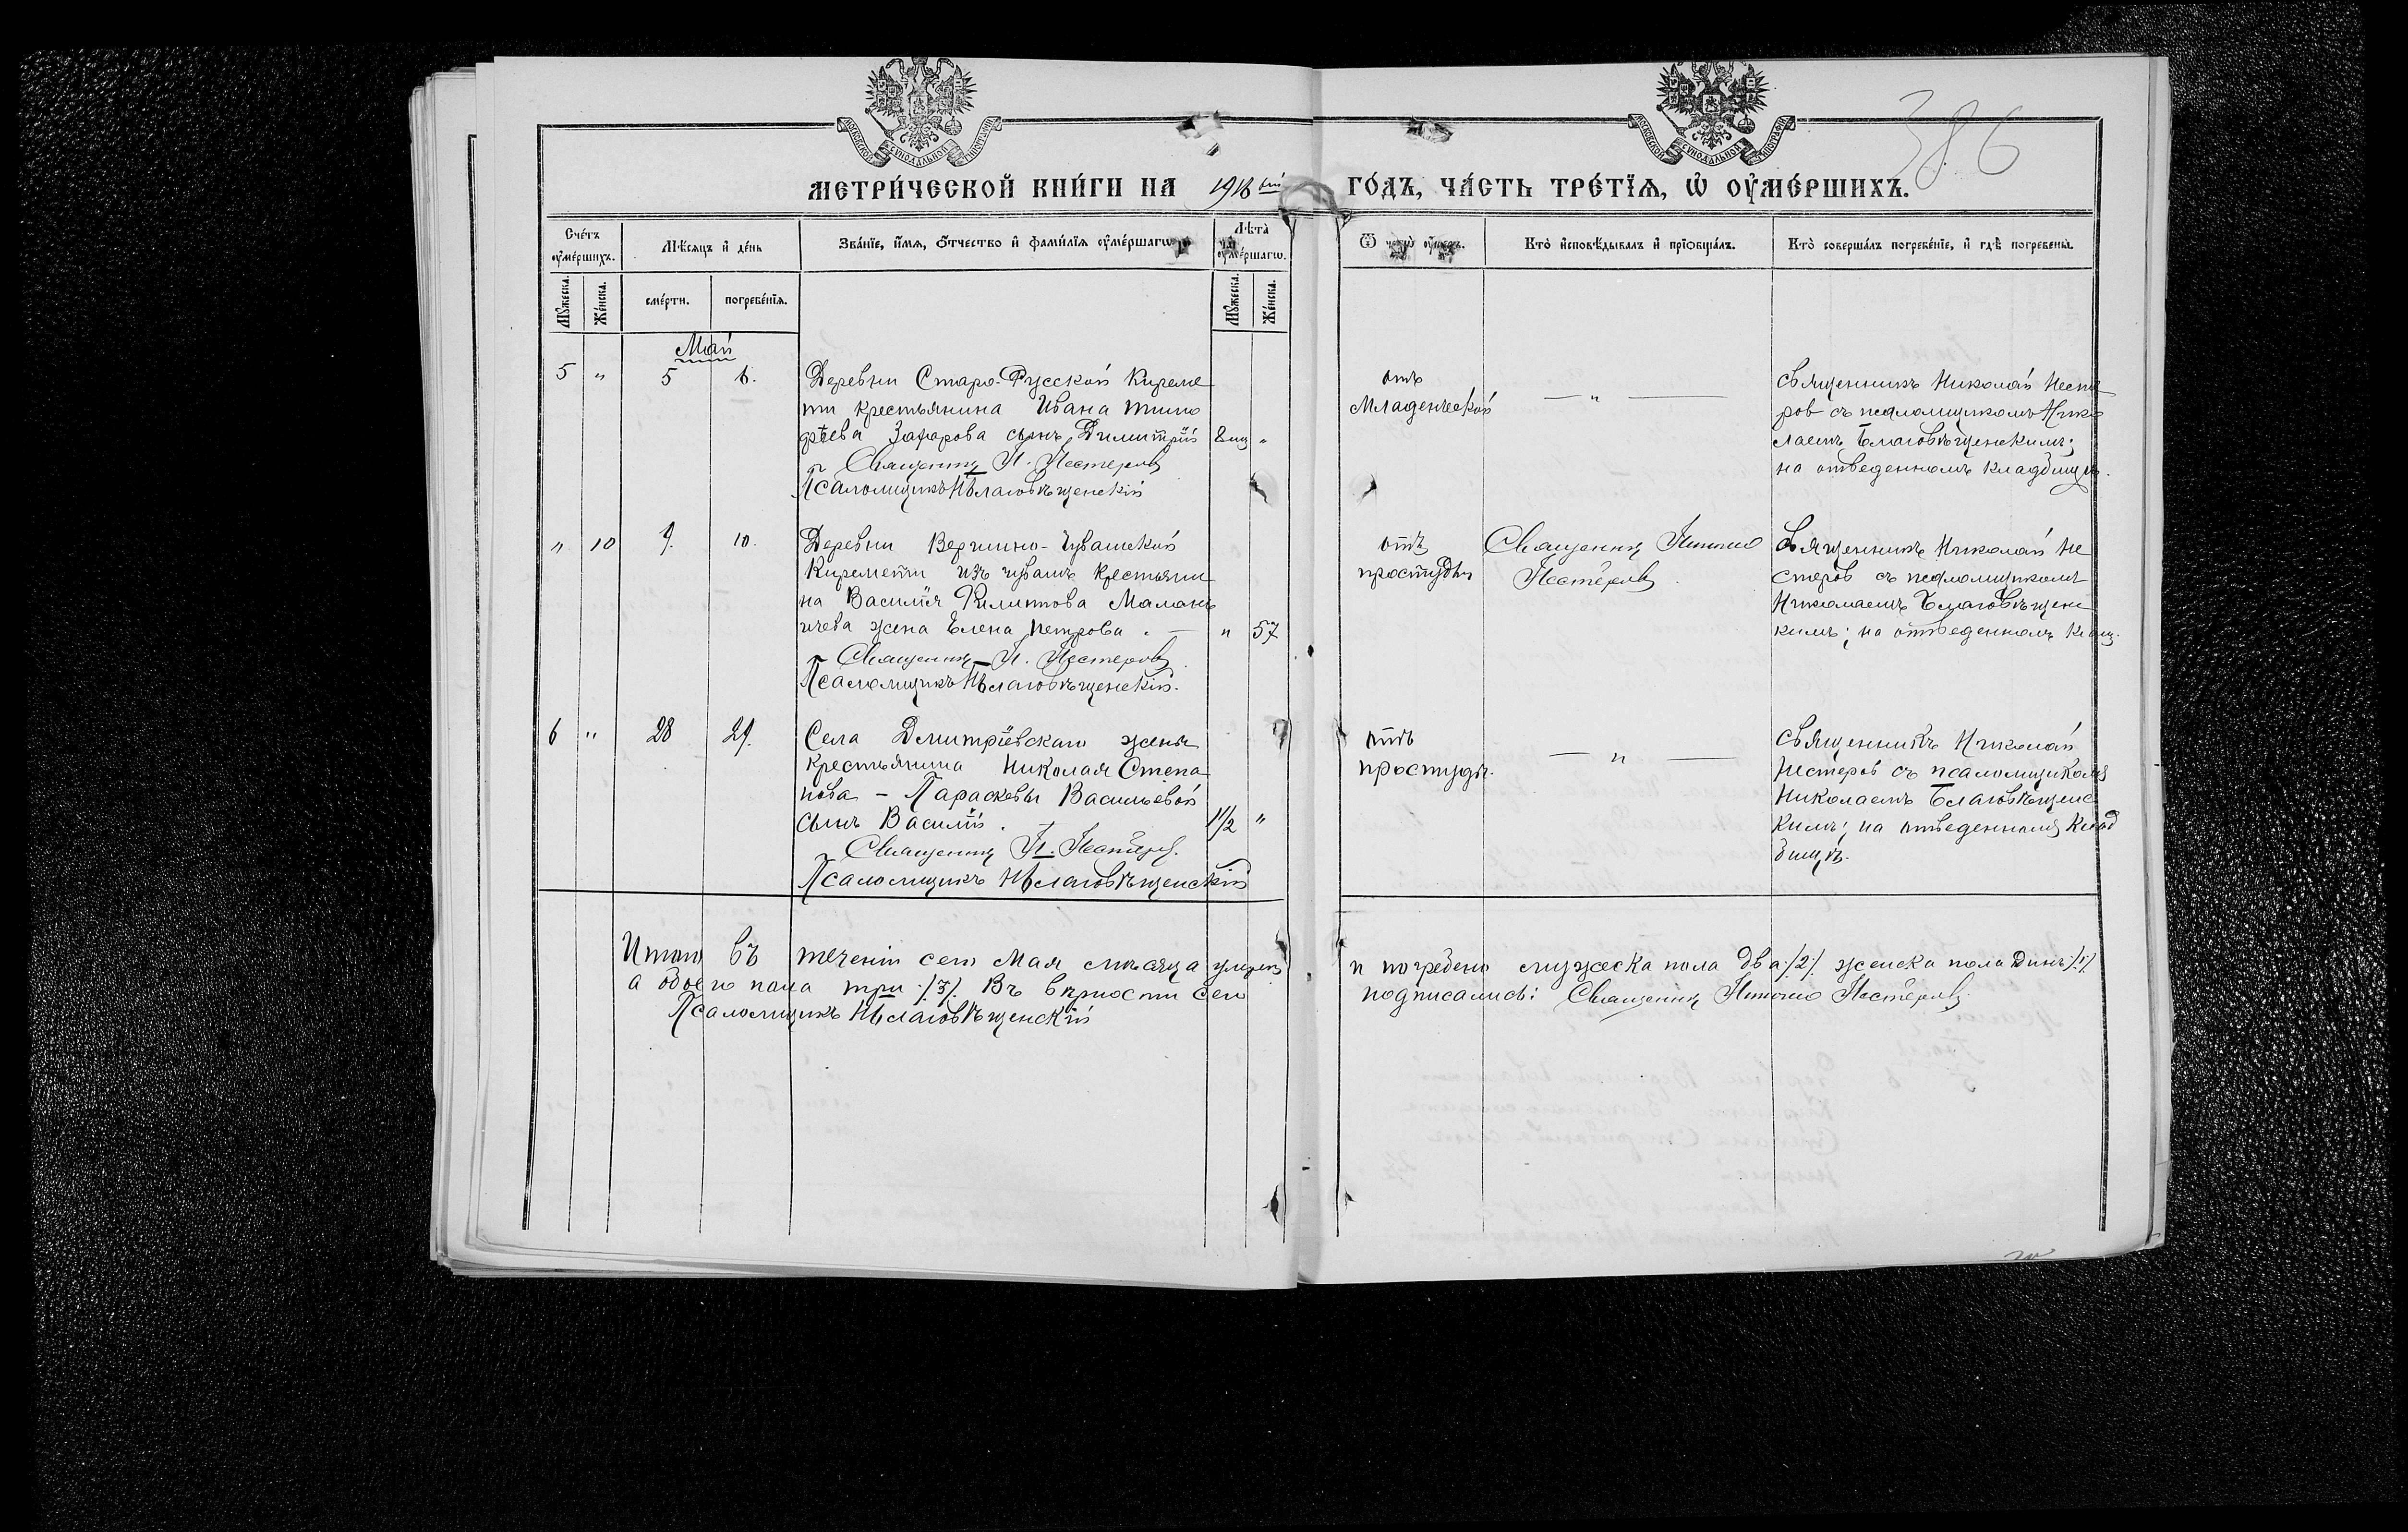 МОСКОВСКОЙ СѴНОДАЛЬНОЙ ТИПОГРАФІИ
МОСКОВСКОЙ СѴНОДАЛЬНОЙ ТИПОГРАФІИ
386
МЕТРИ́ЧЕСКОЙ КНИ́ГИ НА 1918 ый ГО́ДЪ, ЧА́СТЬ ТРЕ́ТІѦ, Ѡ҆ ОУ҆МЕ́РШИХЪ.
Сче́тъ оу҆ме́ршихъ.
Мѣ́сяцъ и҆ де́нь
Зва́нїе, и҆́мѧ, ѻ҆́тчество и҆ фами́лїѧ оу҆ме́ршагѡ
Лѣта̀ оу҆ме́ршагѡ.
Ѿ чегѡ̀ оу҆́меръ.
Кто̀ и҆сповѣ́дывалъ и҆ прїѡбща́лъ.
Кто̀ соверша́лъ погребе́нїе, и҆ гдѣ̀ погребены̀.
Мꙋ́жеска. Же́нска. сме́рти. погребе́нїѧ. Мꙋ́жеска. Же́нска.
Май
5 " 5 6.
Деревни Старо-Русской Киреме
ти крестьянина Ивана Тимо
фѣева Захарова сынъ Димитрій 8 мц "
Священникъ Н. Нестеровъ
Псаломщикъ Н Благовѣщенскій
отъ
Младенческой
— " —
Священникъ Николай Несте
ров съ псаломщикомъ Нико
лаемъ Благовѣщенскимъ;
на отведенномъ кладбищѣ.
" 10 9. 10.
Деревни Вершино-Чувашской
Киремети изъ чувашъ крестьяни
на Василія Филиппова Малань
ичева жена Елена Петрова. — " 57
Священникъ Н. Нестеровъ
Псаломщикъ Н Благовѣщенскій.
отъ
простуды
Священникъ Николай
Нестеровъ
Священникъ Николай Не
стеровъ съ псаломщикомъ
Николаемъ Благовѣщенс
кимъ; на отведенномъ кладб.
6 " 28 29.
Села Дмитріевскаго жены
крестьянина Николая Степа
нова — Параскевы Васильевой
сынъ Василій. 1 1/2 "
Священникъ Н. Нестеровъ.
Псаломщикъ Н Благовѣщенскій
отъ
простуды.
— " —
Священникъ Николай
Нестеровъ съ псаломщикомъ
Николаемъ Благовѣщенс
кимъ; на отведенномъ клад
бищѣ.
Итого въ теченіи сего Мая мѣсяца умерло и погребено мужеска пола два /2/ женска пола одинъ /1/
а обоего пола три /3/. Въ вѣрности сего подписались: Священникъ Николай Нестеровъ
Псаломщикъ Н Благовѣщенскій